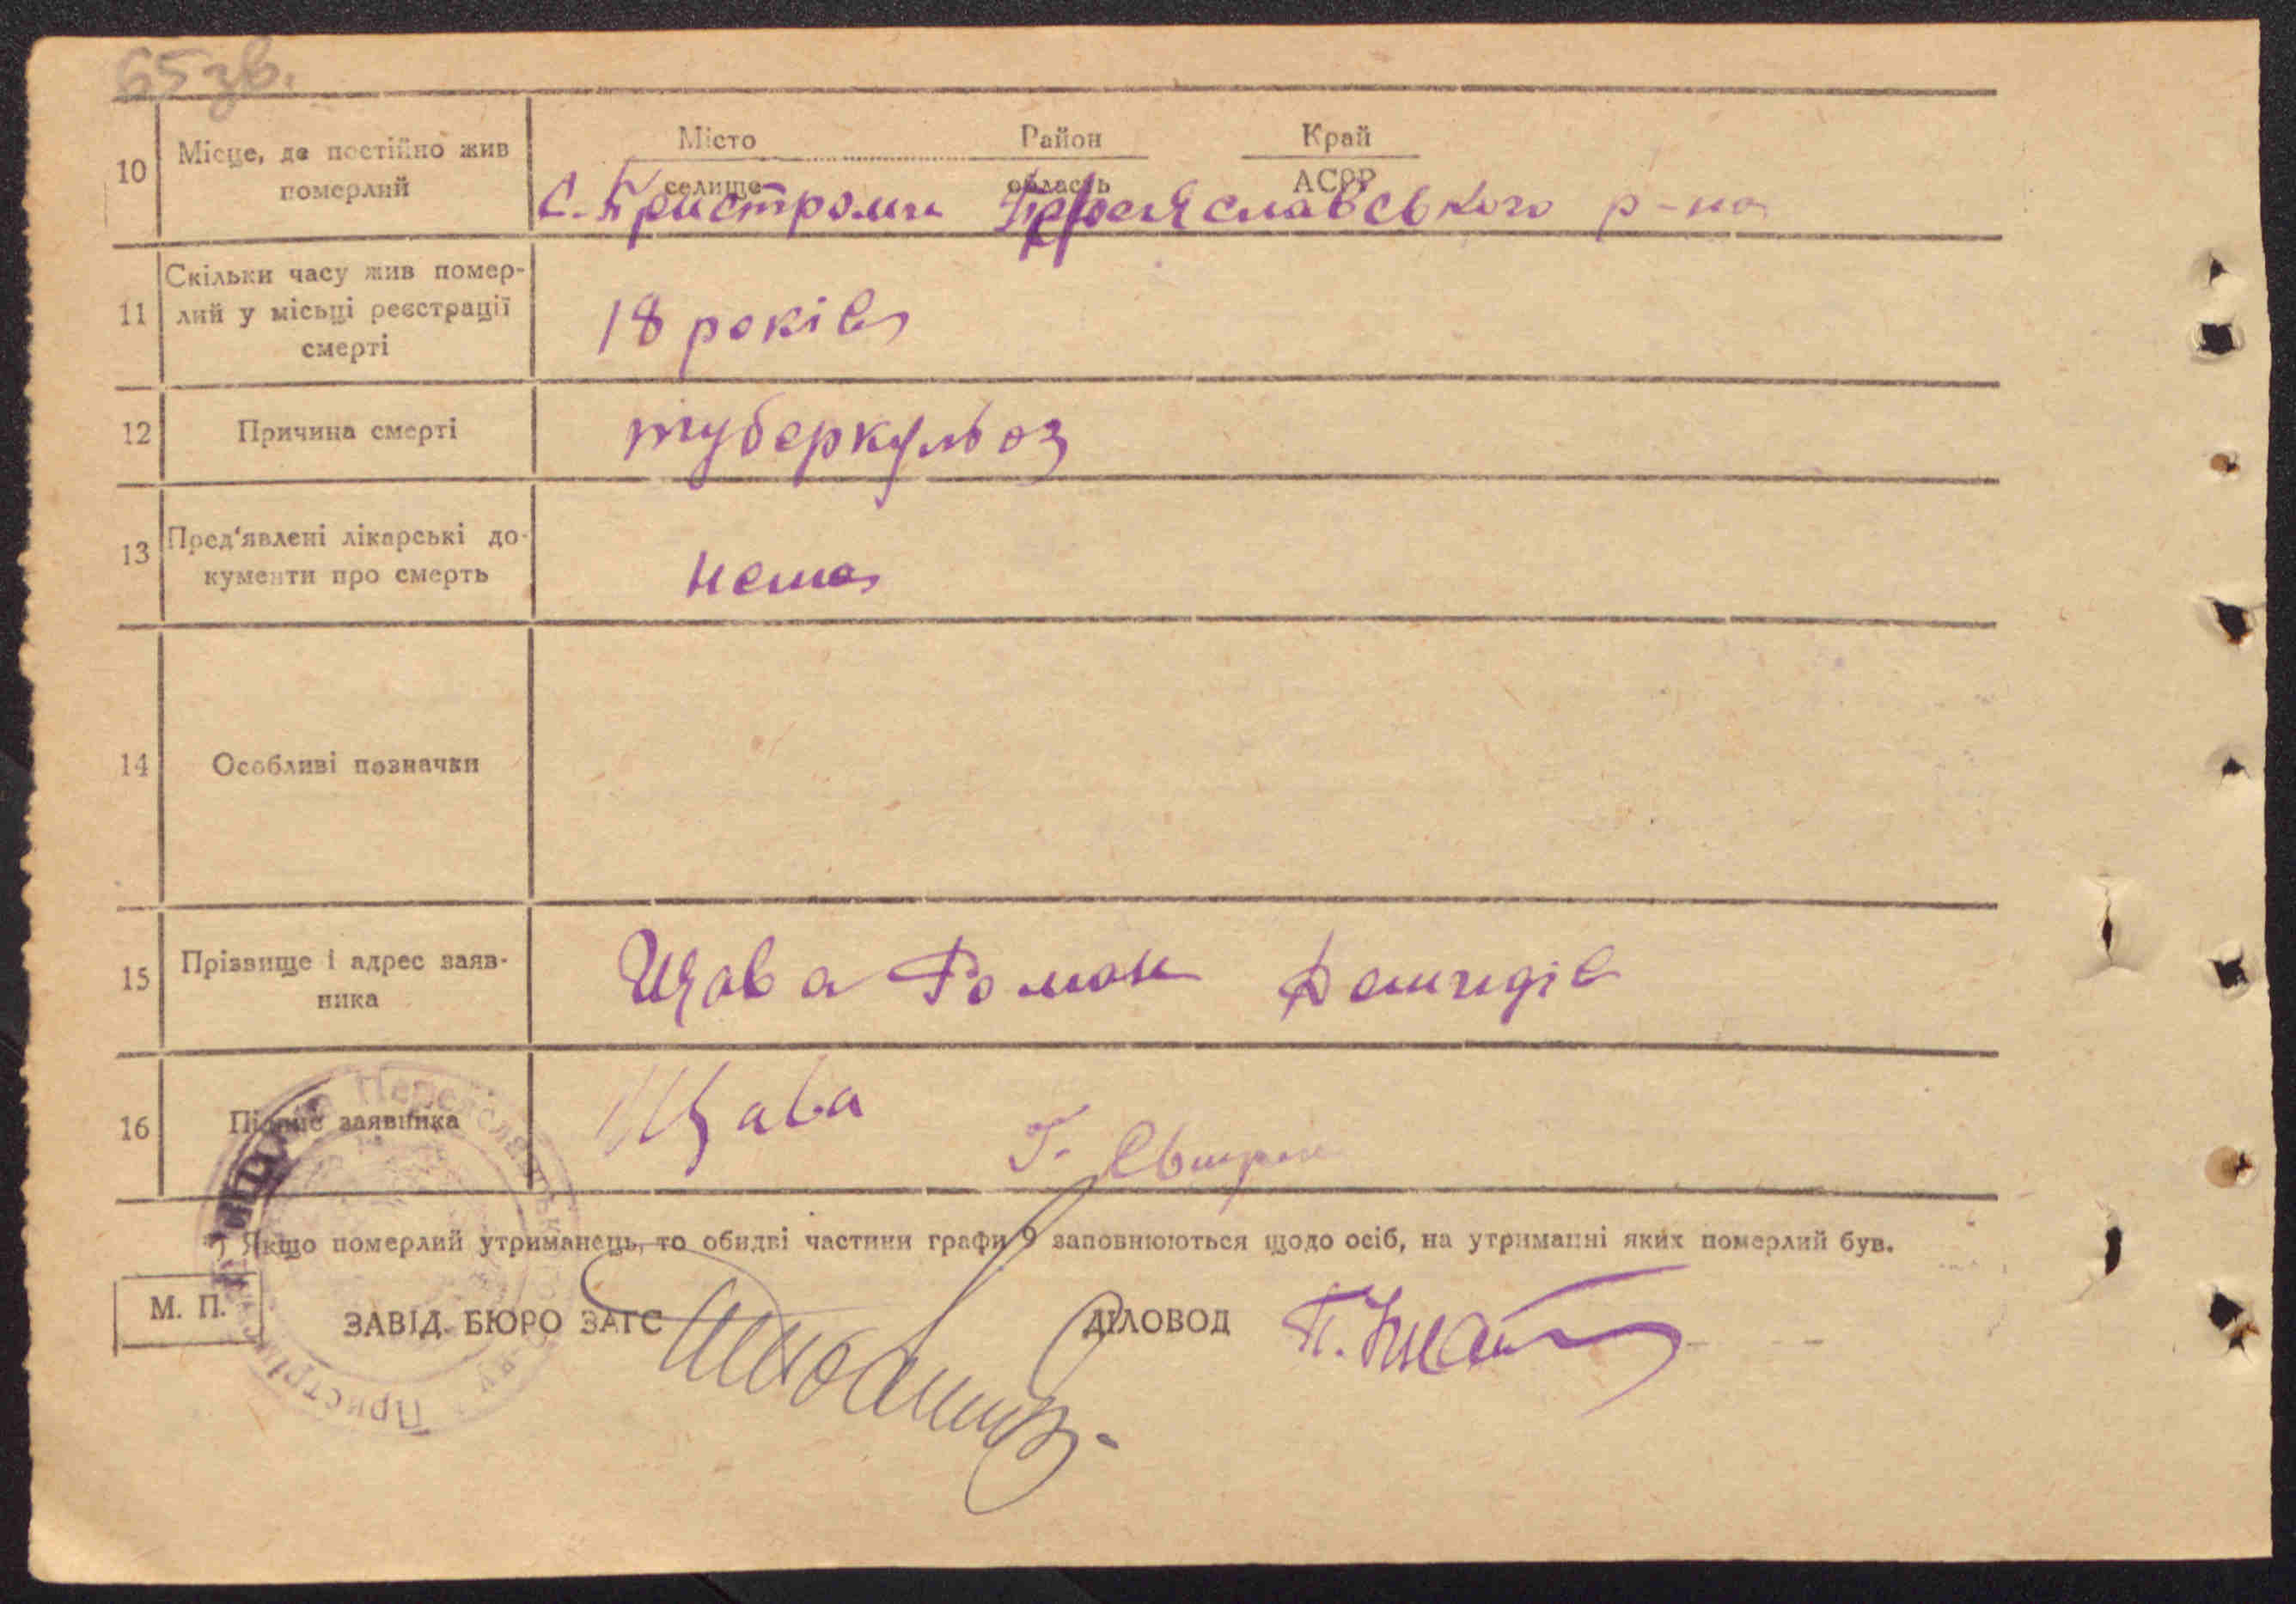 65 зв.
10 Місце, де постійно жив померлий
Місто Район Край
селище область АСРР
с. Пристроми Переяславського р-на
11 Скільки часу жив помер-
лий у місці реєстрації
смерті
18 років
12 Причина смерті
туберкульоз
13 Пред'явлені лікарські до-
кументи про смерть
нема
14 Особливі позначки
15 Прізвище і адрес заяв-
ника
Щава Роман Демидів
16 Підпис заявника
Щава
Г.
*) Якщо померлий утриманець, то обидві частини графи 9 заповнюються щодо осіб, на утриманні яких померлий був.
М. П.
ЗАВІД. БЮРО ЗАГС
ДІЛОВОД
П.